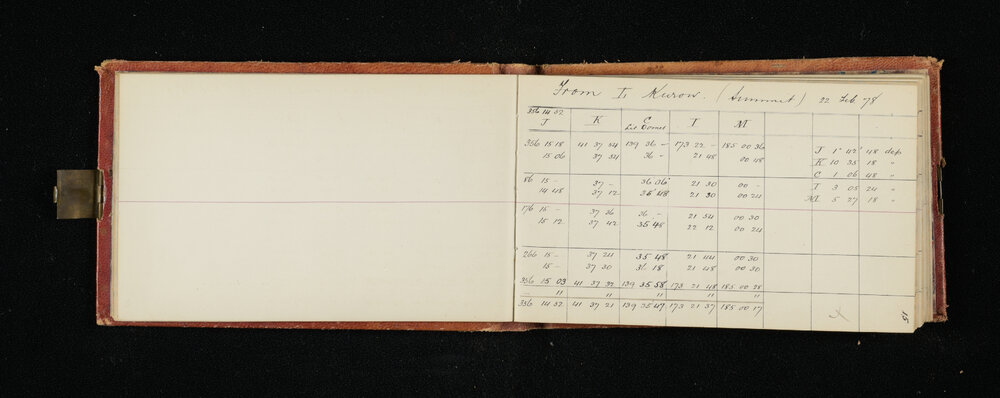 From L Kurow. (Summit) 22 Feb 78
356 14 52
J K E I M
Lit Comet
356 15 18 41 37 54 139 36 – 173 22 – 185 00 36
15 06 37 54 36 – 21 48 00 48
86 15 – 37 – 36 06 21 30 00 –
14 48 37 12 35 48 21 30 00 24
176 15 – 37 36 36 – 21 54 00 30
15 12 37 42 35 48 22 12 00 24
266 15 – 37 24 35 48 21 44 00 30
15 – 37 30 36 18 21 48 00 30
356 15 03 41 37 32 139 35 58 173 21 48 185 00 28
— 11 11 11 11 11
356 14 52 41 37 21 139 35 47 173 21 37 185 00 17
J 1° 42' 48 dep
K 10 35 18 "
C 1 06 48 "
I 3 05 24 "
M 5 27 18 "
X
51